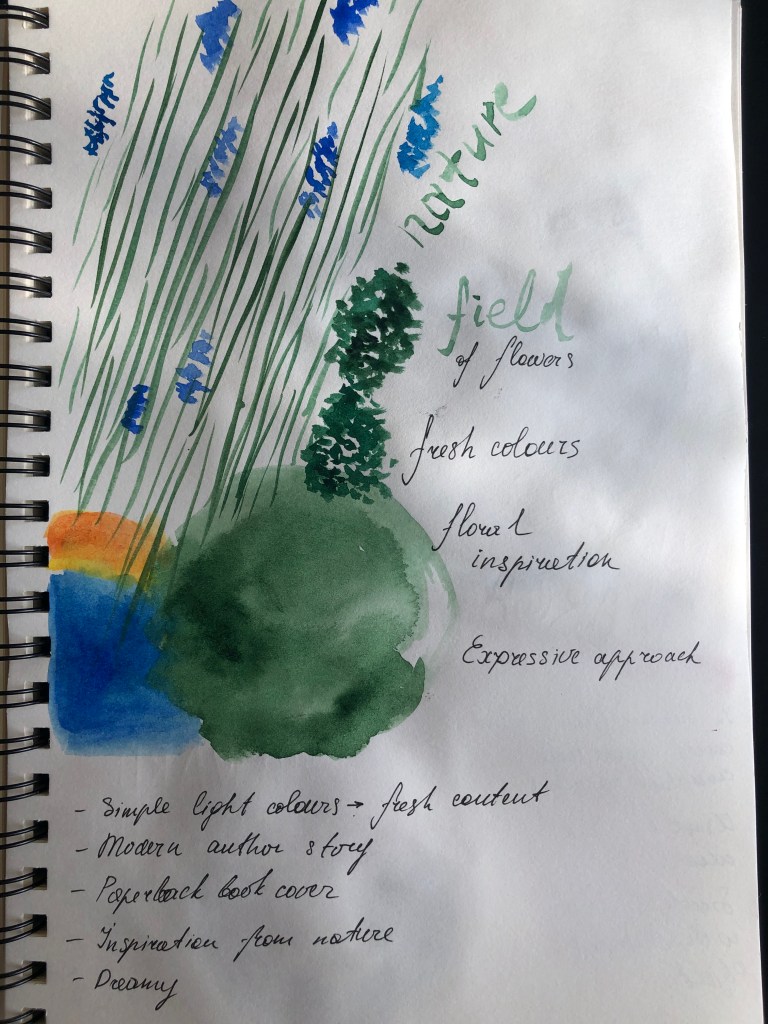 nature
field
of flowers
fresh colours
floral
inspiration
Expressive approach
- Simple light colours → fresh content
- Modern author story
- Paperback book cover
- Inspiration from nature
- Dreamy